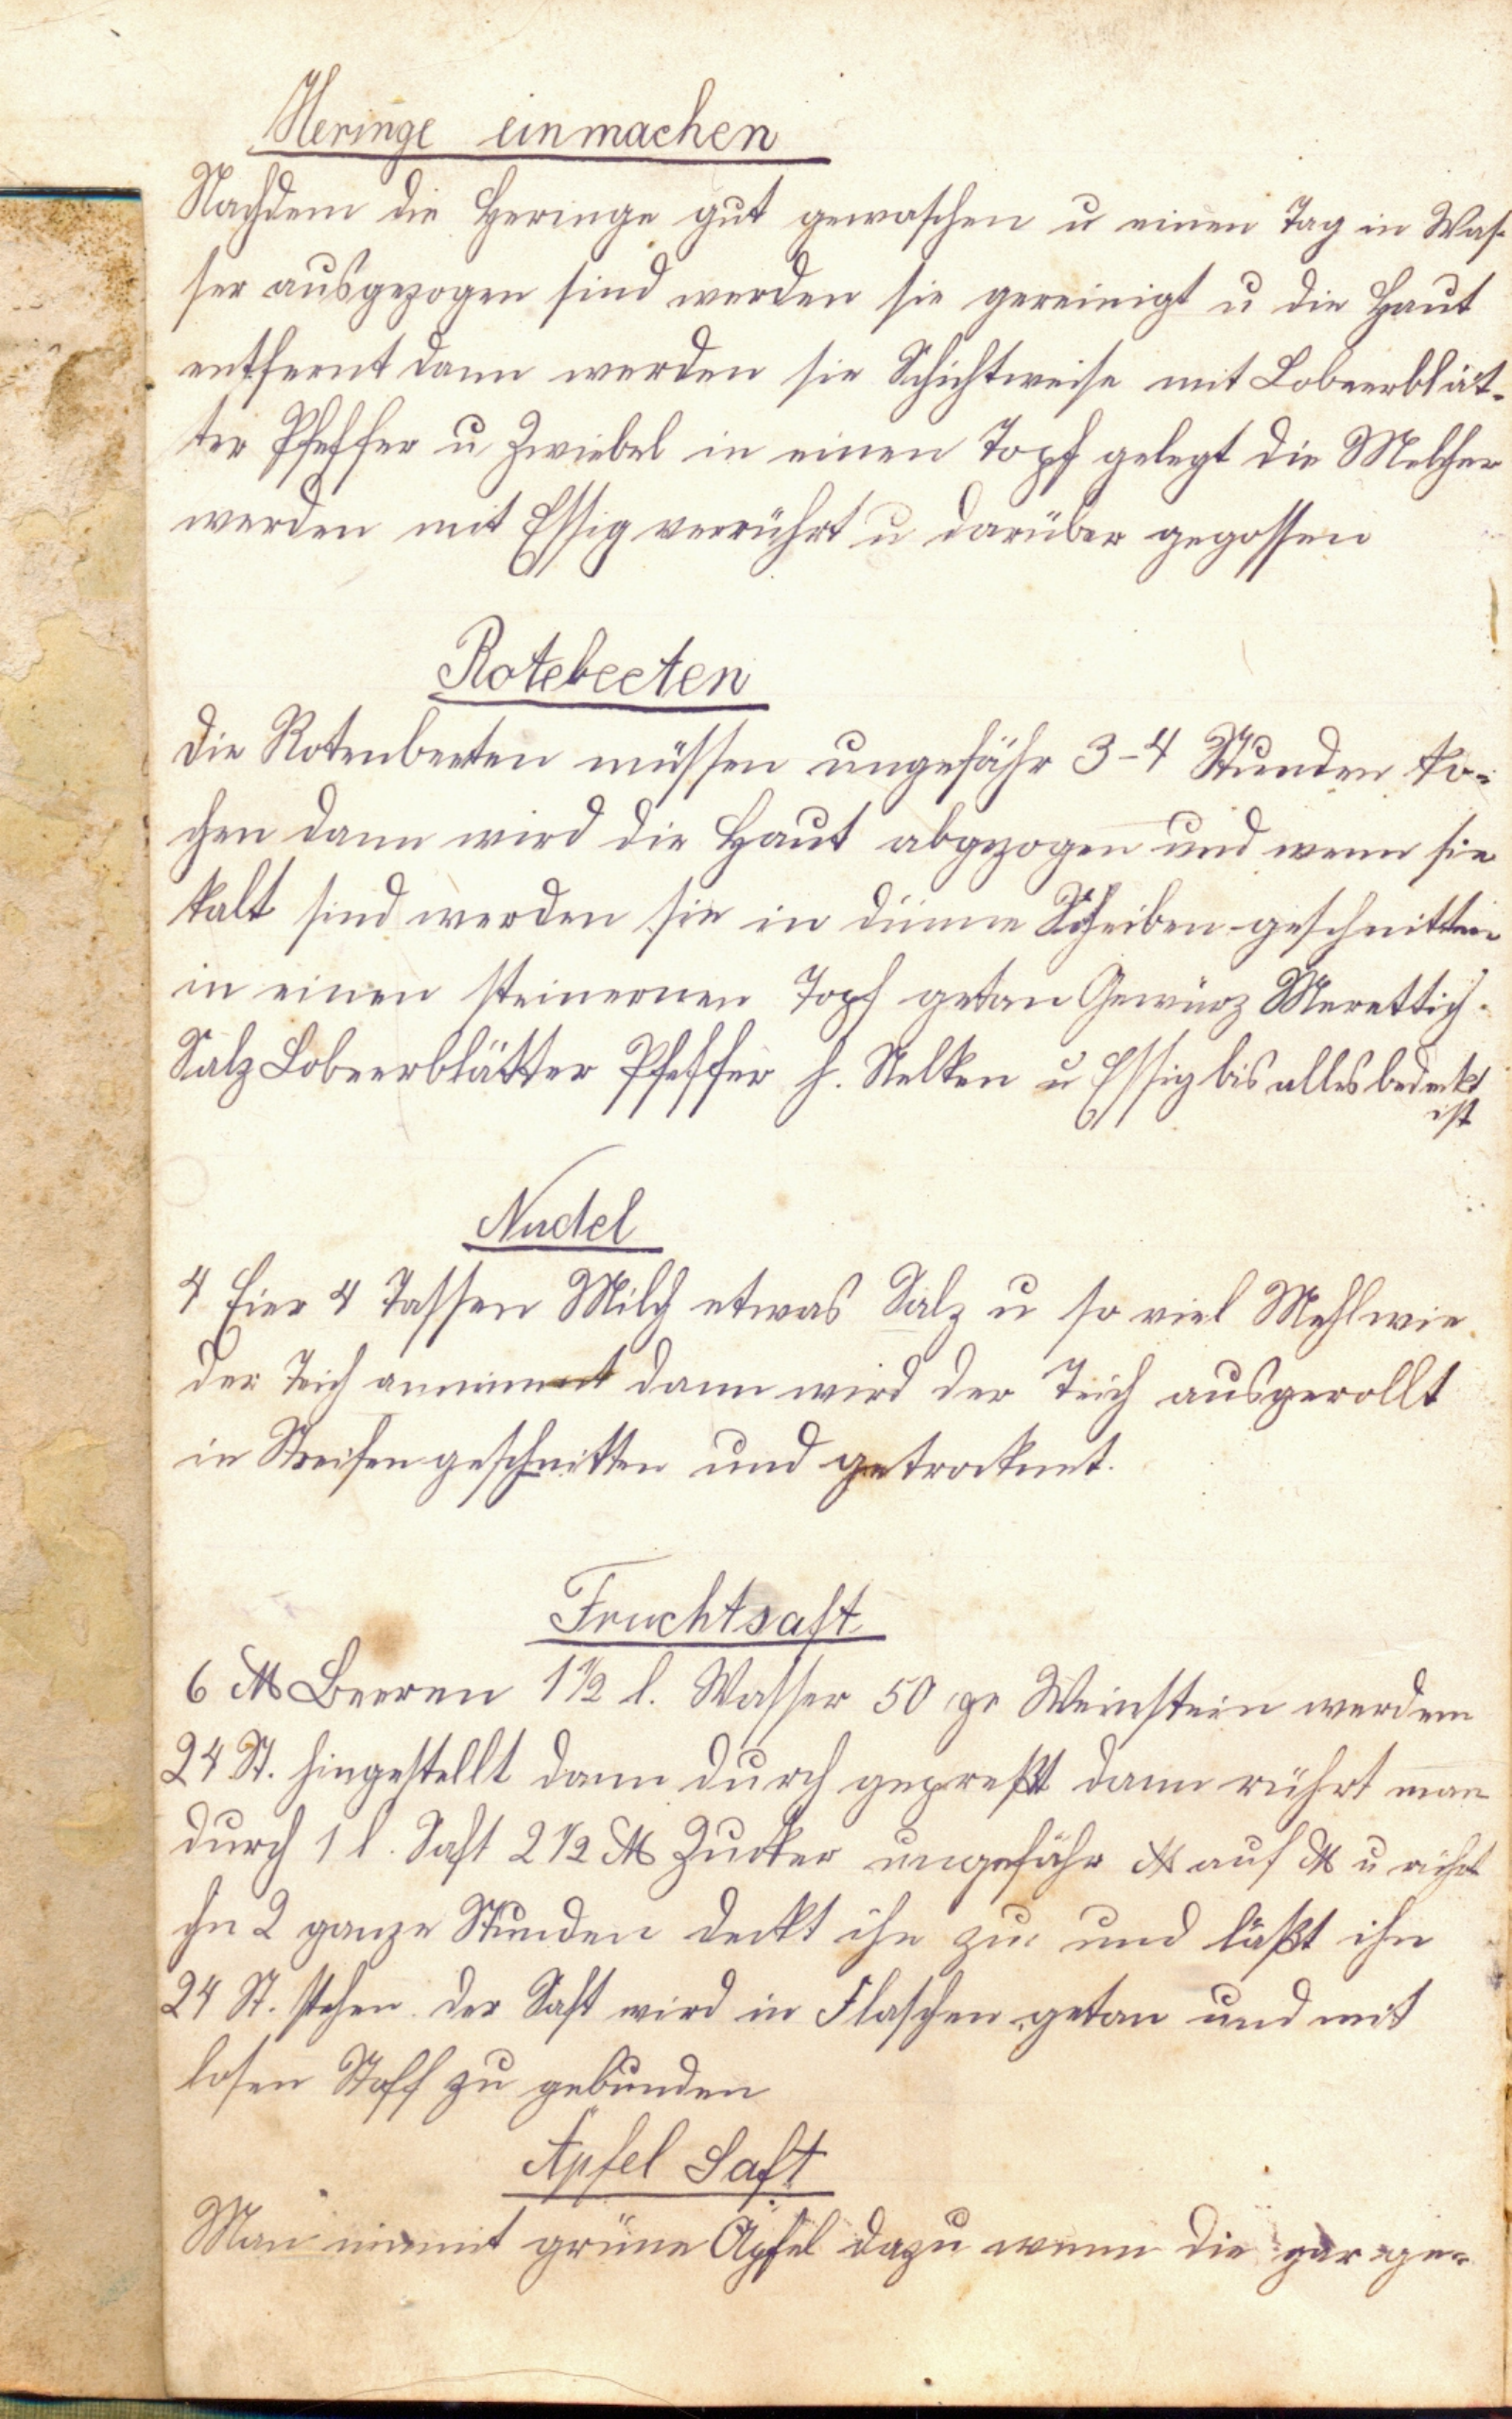 Heringe einmachen
Nachdem die Heringe gut gewaschen u einen Tag in Was-
ser ausgezogen sind werden sie gereinigt u die Haut
entfernt dann werden sie Schichtweise mit Lobeerblät-
ter Pfeffer u Zwiebel in einen Topf gelegt die Melcher
werden mit Essig verrührt u darüber gegossen
Rotebeeten
die Rotenbeeten müssen ungefähr 3-4 Stunden ko-
chen dann wird die Haut abgezogen und wenn sie
kalt sind werden sie in dünne Scheiben geschnitten
in einen steinernen Topf getan Gewürz Merettich.
Salz Lobeerblätter Pfeffer h. Nelken u Essig bis alles bedeckt
ist
Nudel
4 Eier 4 Tassen Milch etwas Salz u so viel Mehl wie
der Teich annimmt dann wird der Teich ausgerollt
in Streifen geschnitten und getrocknet.
Fruchtsaft
6 ℔ Beeren 1½ l. Wasser 50 gr Weinstein werden
24 St. hingestellt dann durch gepreßt dann rührt man
durch 1 l. Saft 2½ ℔ Zucker ungefähr ℔ auf ℔ u rührt
ihn 2 ganze Stunden deckt ihn zu und läßt ihn
24 St. stehen der Saft wird in Flaschen getan und mit
losen Stoff zu gebunden
Äpfel Saft
Man nimmt grüne Äpfel dazu wenn die gar ge-